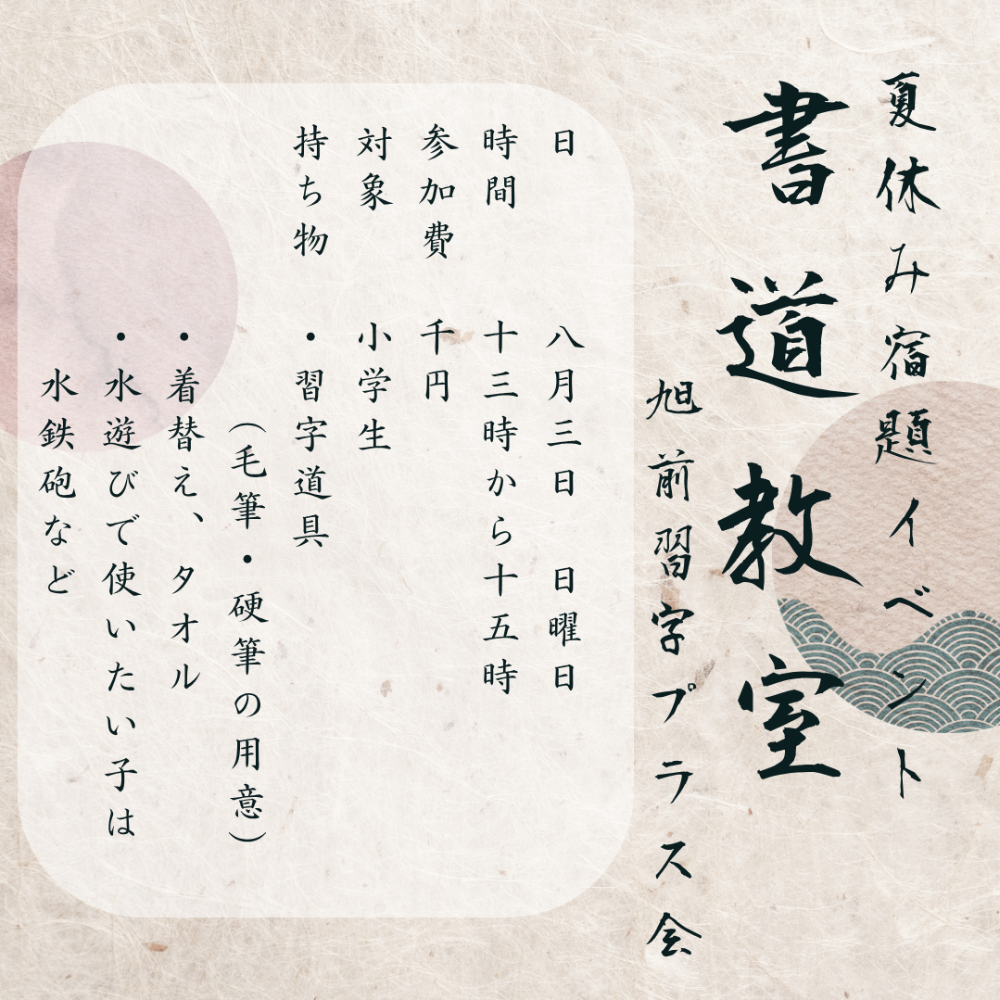 夏休み宿題イベント
書道教室
旭前習字プラス会
日　八月三日　日曜日
時間　十三時から十五時
参加費　千円
対象　小学生
持ち物　・習字道具
（毛筆・硬筆の用意）
・着替え、タオル
・水遊びで使いたい子は
水鉄砲など